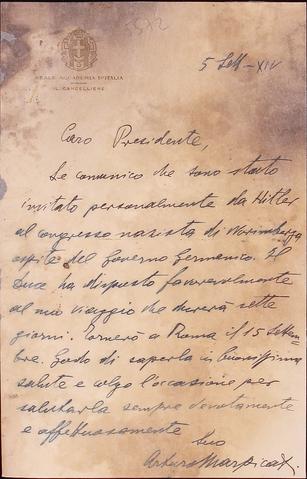 5572
REALE ACCADEMIA D'ITALIA
IL CANCELLIERE
5 Sett - XIV
Caro Presidente,
Le comunico che sono stato
invitato personalmente da Hitler
al congresso nazista di Norimberga
ospite del Governo Germanico. Il
Duce ha disposto favorevolmente
al mio viaggio che durerà sette
giorni. Tornerò a Roma il 15 Settem
bre. Godo di saperla in buonissima
salute e colgo l'occasione per
salutarla sempre devotamente
e affettuosamente
Suo
Arturo Marpicati